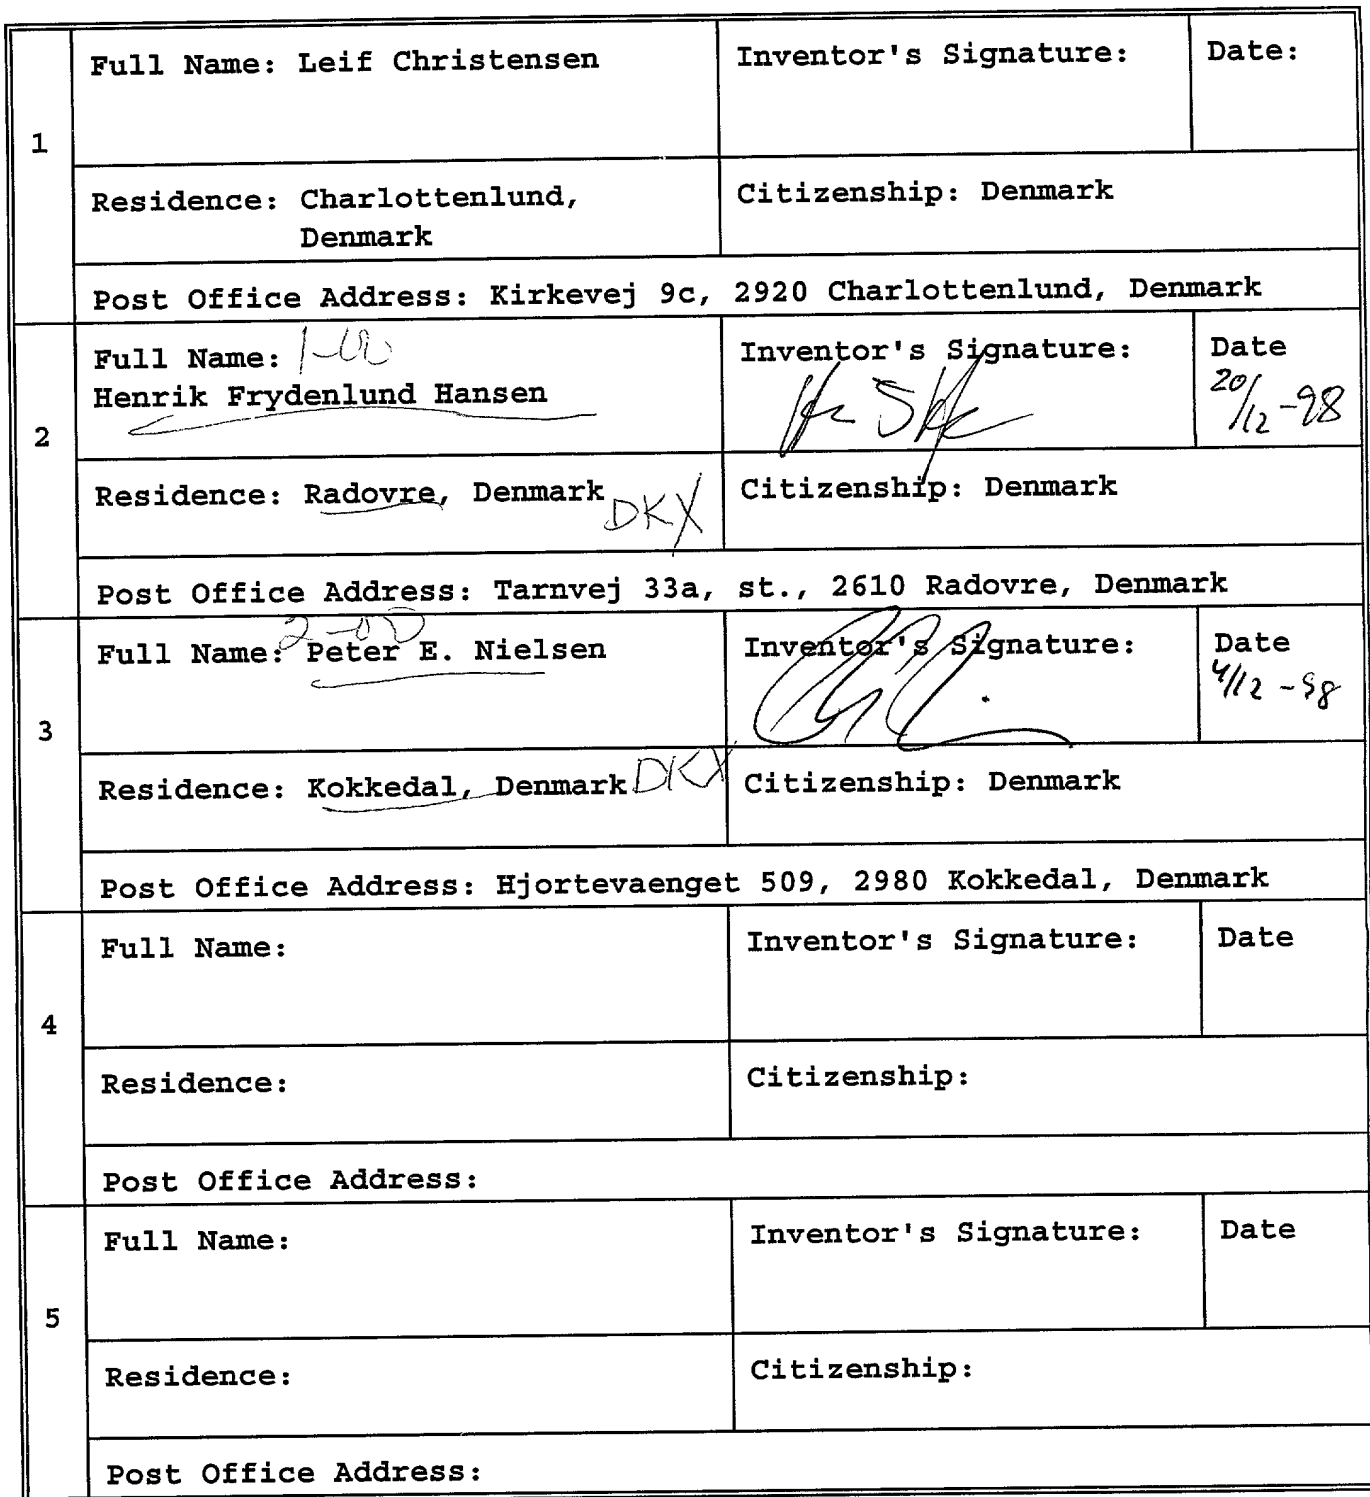 Full Name: Leif Christensen
Inventor's Signature:
Date:
1
Residence: Charlottenlund,
Denmark
Citizenship: Denmark
Post Office Address: Kirkevej 9c, 2920 Charlottenlund, Denmark
Full Name:
Henrik Frydenlund Hansen
Inventor's Signature:
Date
20/12-98
2
Residence: Radovre, Denmark DKX
Citizenship: Denmark
Post Office Address: Tarnvej 33a, st., 2610 Radovre, Denmark
Full Name: Peter E. Nielsen
Inventor's Signature:
Date
4/12-98
3
Residence: Kokkedal, Denmark DKX
Citizenship: Denmark
Post Office Address: Hjortevaenget 509, 2980 Kokkedal, Denmark
Full Name:
Inventor's Signature:
Date
4
Residence:
Citizenship:
Post Office Address:
Full Name:
Inventor's Signature:
Date
5
Residence:
Citizenship:
Post Office Address: